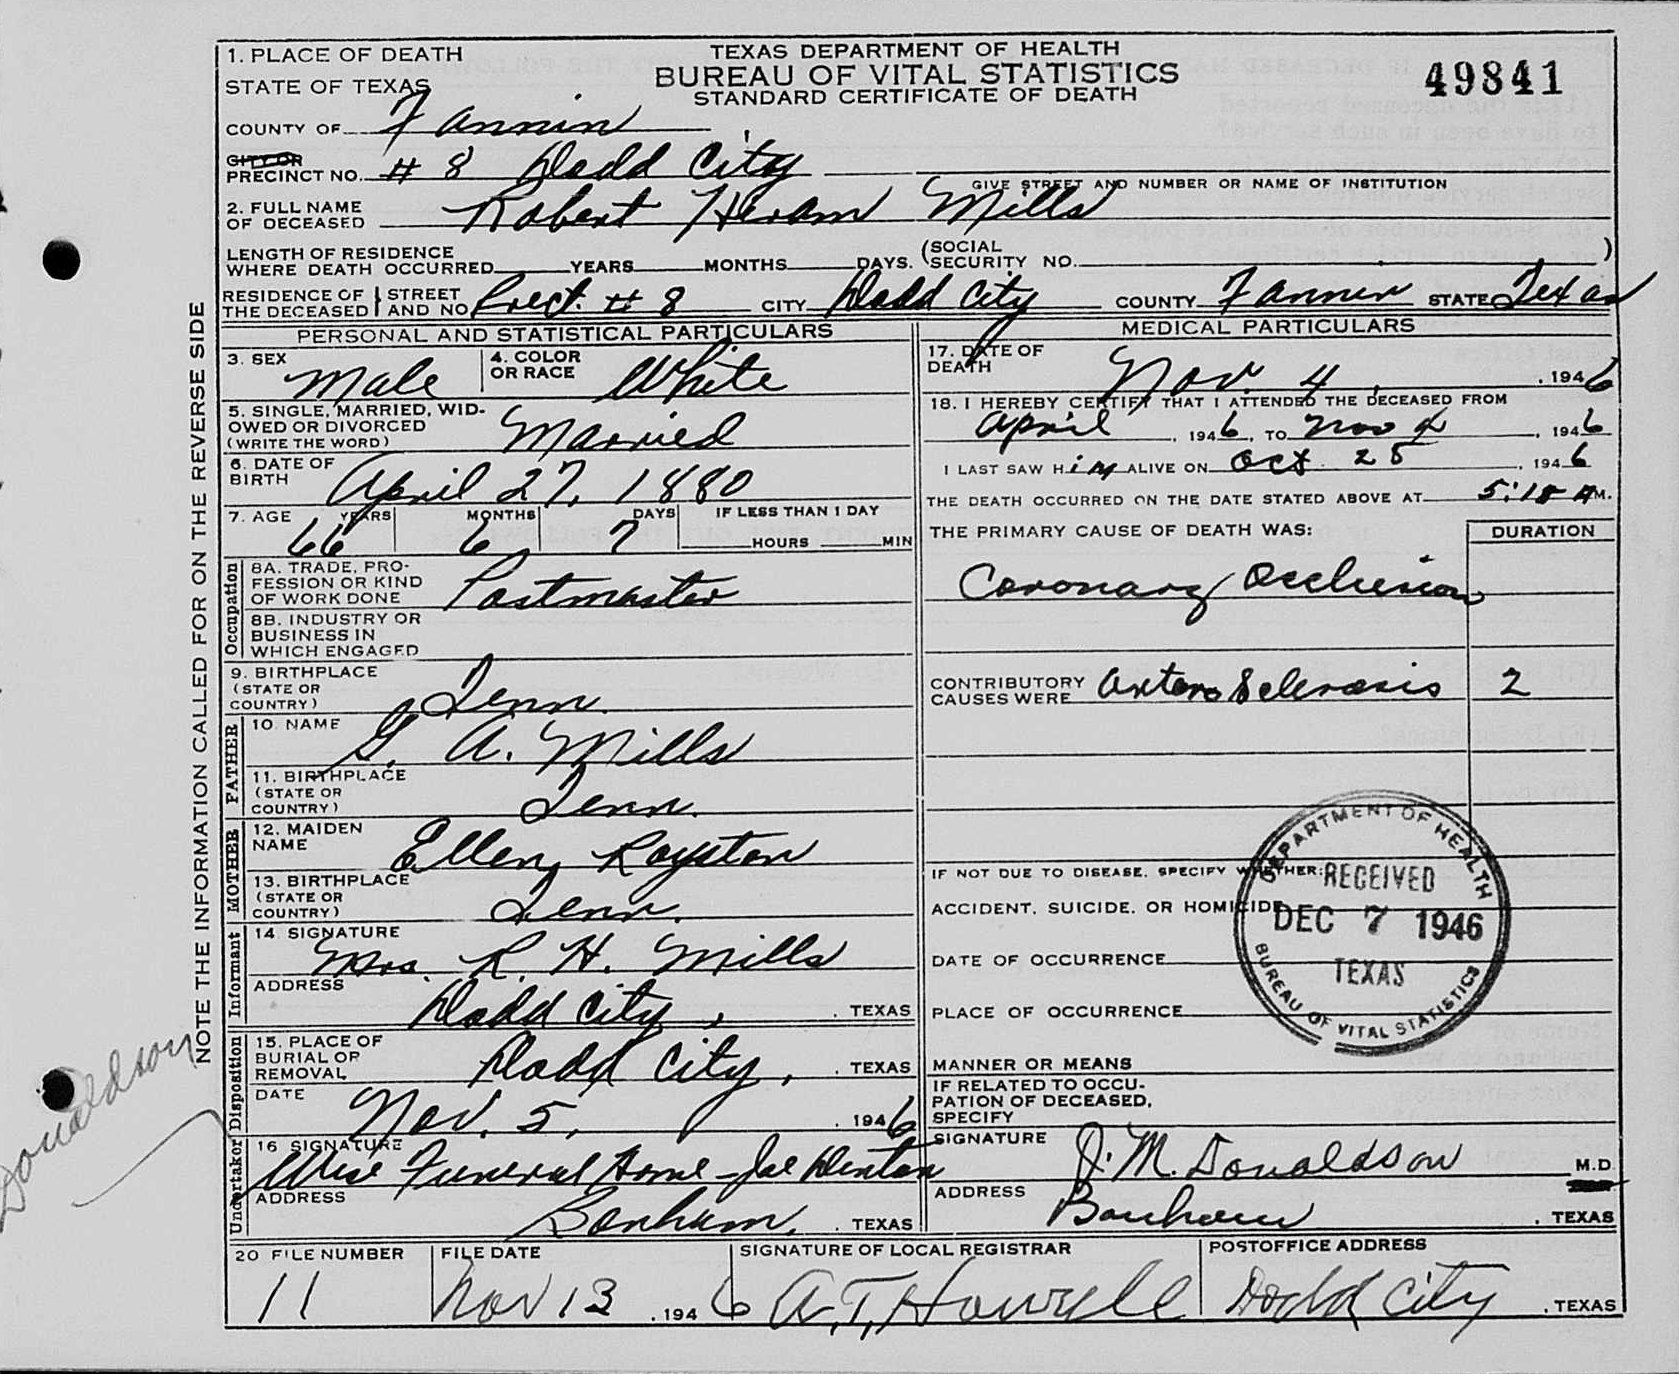 1. PLACE OF DEATH
STATE OF TEXAS
TEXAS DEPARTMENT OF HEALTH
BUREAU OF VITAL STATISTICS
STANDARD CERTIFICATE OF DEATH
49841
COUNTY OF Fannin
CITY OR
PRECINCT NO. # 8 Dodd City
GIVE STREET AND NUMBER OR NAME OF INSTITUTION
2. FULL NAME
OF DECEASED Robert Hiram Mills
LENGTH OF RESIDENCE
WHERE DEATH OCCURRED YEARS MONTHS DAYS. (SOCIAL
SECURITY NO. )
RESIDENCE OF THE DECEASED STREET AND NO. Prect. # 8 CITY Dodd City COUNTY Fannin STATE Texas
PERSONAL AND STATISTICAL PARTICULARS
3. SEX Male
4. COLOR
OR RACE White
5. SINGLE, MARRIED, WID-
OWED OR DIVORCED
(WRITE THE WORD) Married
6. DATE OF
BIRTH April 27, 1880
7. AGE YEARS MONTHS DAYS IF LESS THAN 1 DAY
66 6 7 HOURS MIN
Occupation
8A. TRADE, PRO-
FESSION OR KIND
OF WORK DONE Postmaster
8B. INDUSTRY OR
BUSINESS IN
WHICH ENGAGED
9. BIRTHPLACE
(STATE OR
COUNTRY) Tenn.
FATHER
10 NAME G. A. Mills
11. BIRTHPLACE
(STATE OR
COUNTRY) Tenn.
MOTHER
12. MAIDEN
NAME Ellen Royston
13. BIRTHPLACE
(STATE OR
COUNTRY) Tenn.
Informant
14 SIGNATURE
Mrs. R. H. Mills
ADDRESS
Dodd City, TEXAS
Disposition
15. PLACE OF
BURIAL OR
REMOVAL Dodd City, TEXAS
DATE Nov. 5, 1946
Undertaker
16 SIGNATURE
Wise Funeral Home - Joe Denton
ADDRESS
Bonham, TEXAS
MEDICAL PARTICULARS
17. DATE OF
DEATH Nov. 4, 1946
18. I HEREBY CERTIFY THAT I ATTENDED THE DECEASED FROM
April, 1946, TO Nov 4, 1946
I LAST SAW Him ALIVE ON Oct 28, 1946
THE DEATH OCCURRED ON THE DATE STATED ABOVE AT 5:18 AM.
THE PRIMARY CAUSE OF DEATH WAS: DURATION
Coronary Occlusion
CONTRIBUTORY
CAUSES WERE Artero Sclerosis 2
IF NOT DUE TO DISEASE, SPECIFY WHETHER:
ACCIDENT, SUICIDE, OR HOMICIDE
DATE OF OCCURRENCE
PLACE OF OCCURRENCE
MANNER OR MEANS
IF RELATED TO OCCU-
PATION OF DECEASED,
SPECIFY
SIGNATURE J. M. Donaldson M.D.
ADDRESS
Bonham, TEXAS
DEPARTMENT OF HEALTH
RECEIVED
DEC 7 1946
TEXAS
BUREAU OF VITAL STATISTICS
20 FILE NUMBER FILE DATE SIGNATURE OF LOCAL REGISTRAR POSTOFFICE ADDRESS
11 Nov 13, 1946 Dodd City, TEXAS
NOTE THE INFORMATION CALLED FOR ON THE REVERSE SIDE
Donaldson